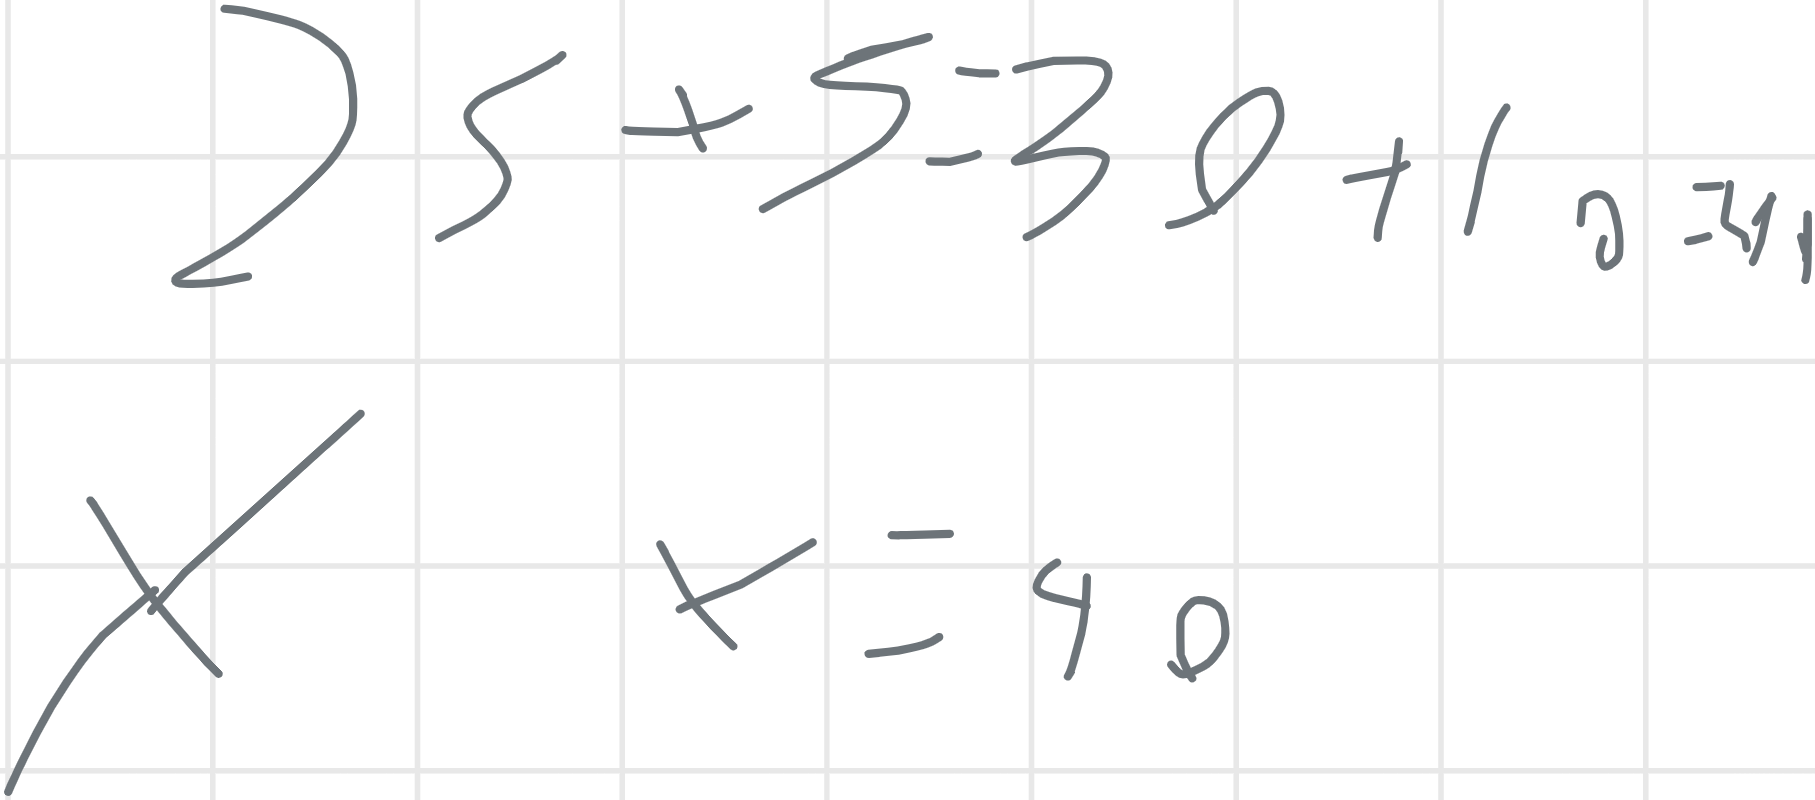 25 + 5 = 30 + 10 = 4
x x = 40